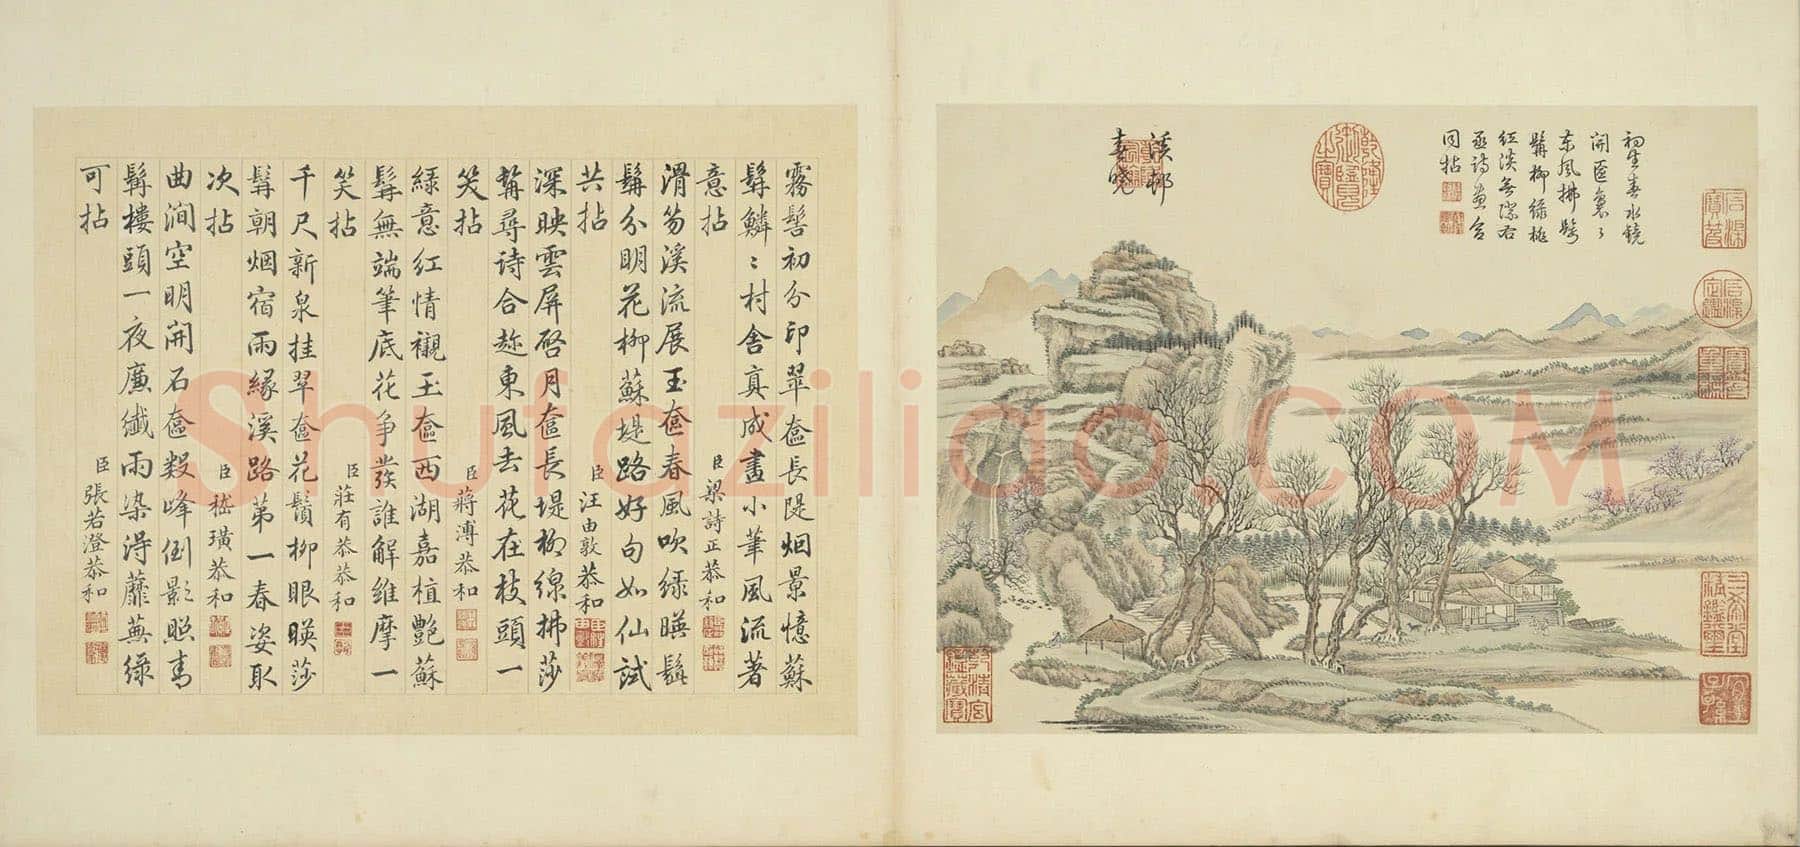 初生春水鏡
開匳裊〻
東風拂髩
髯柳綠桃
紅渋無際右
丞詩畫合
同拈
溪邨
春曉
霧髻初分印翠奩長隄烟景憶蘇
髯鱗〻村舍真成畫小筆風流著
意拈
臣梁詩正恭和
滑笏溪流展玉奩春風吹綠曛鬚
髯分明花柳蘇堤路好句如仙試
共拈
臣汪由敦恭和
深映雲屏啓月奩長堤柳線拂莎
髯尋詩合趂東風去花在枝頭一
笑拈
臣蔣溥恭和
綠意紅情襯玉奩西湖嘉植艷蘇
髯無端筆底花爭發誰解維摩一
笑拈
臣莊有恭恭和
千尺新泉挂翠奩花鬚柳眼暎莎
髯朝烟宿雨緣溪路第一春姿取
次拈
臣嵇璜恭和
曲澗空明開石奩數峰倒影照青
髯樓頭一夜廉纖雨染得蘼蕪綠
可拈
臣張若澄恭和
乾隆御覽之寶
石渠寶笈
石渠定鑑
寶笈重編
三希堂精鑑璽
宜子孫
乾清宮鑑藏寶
Shufaziliao.COM